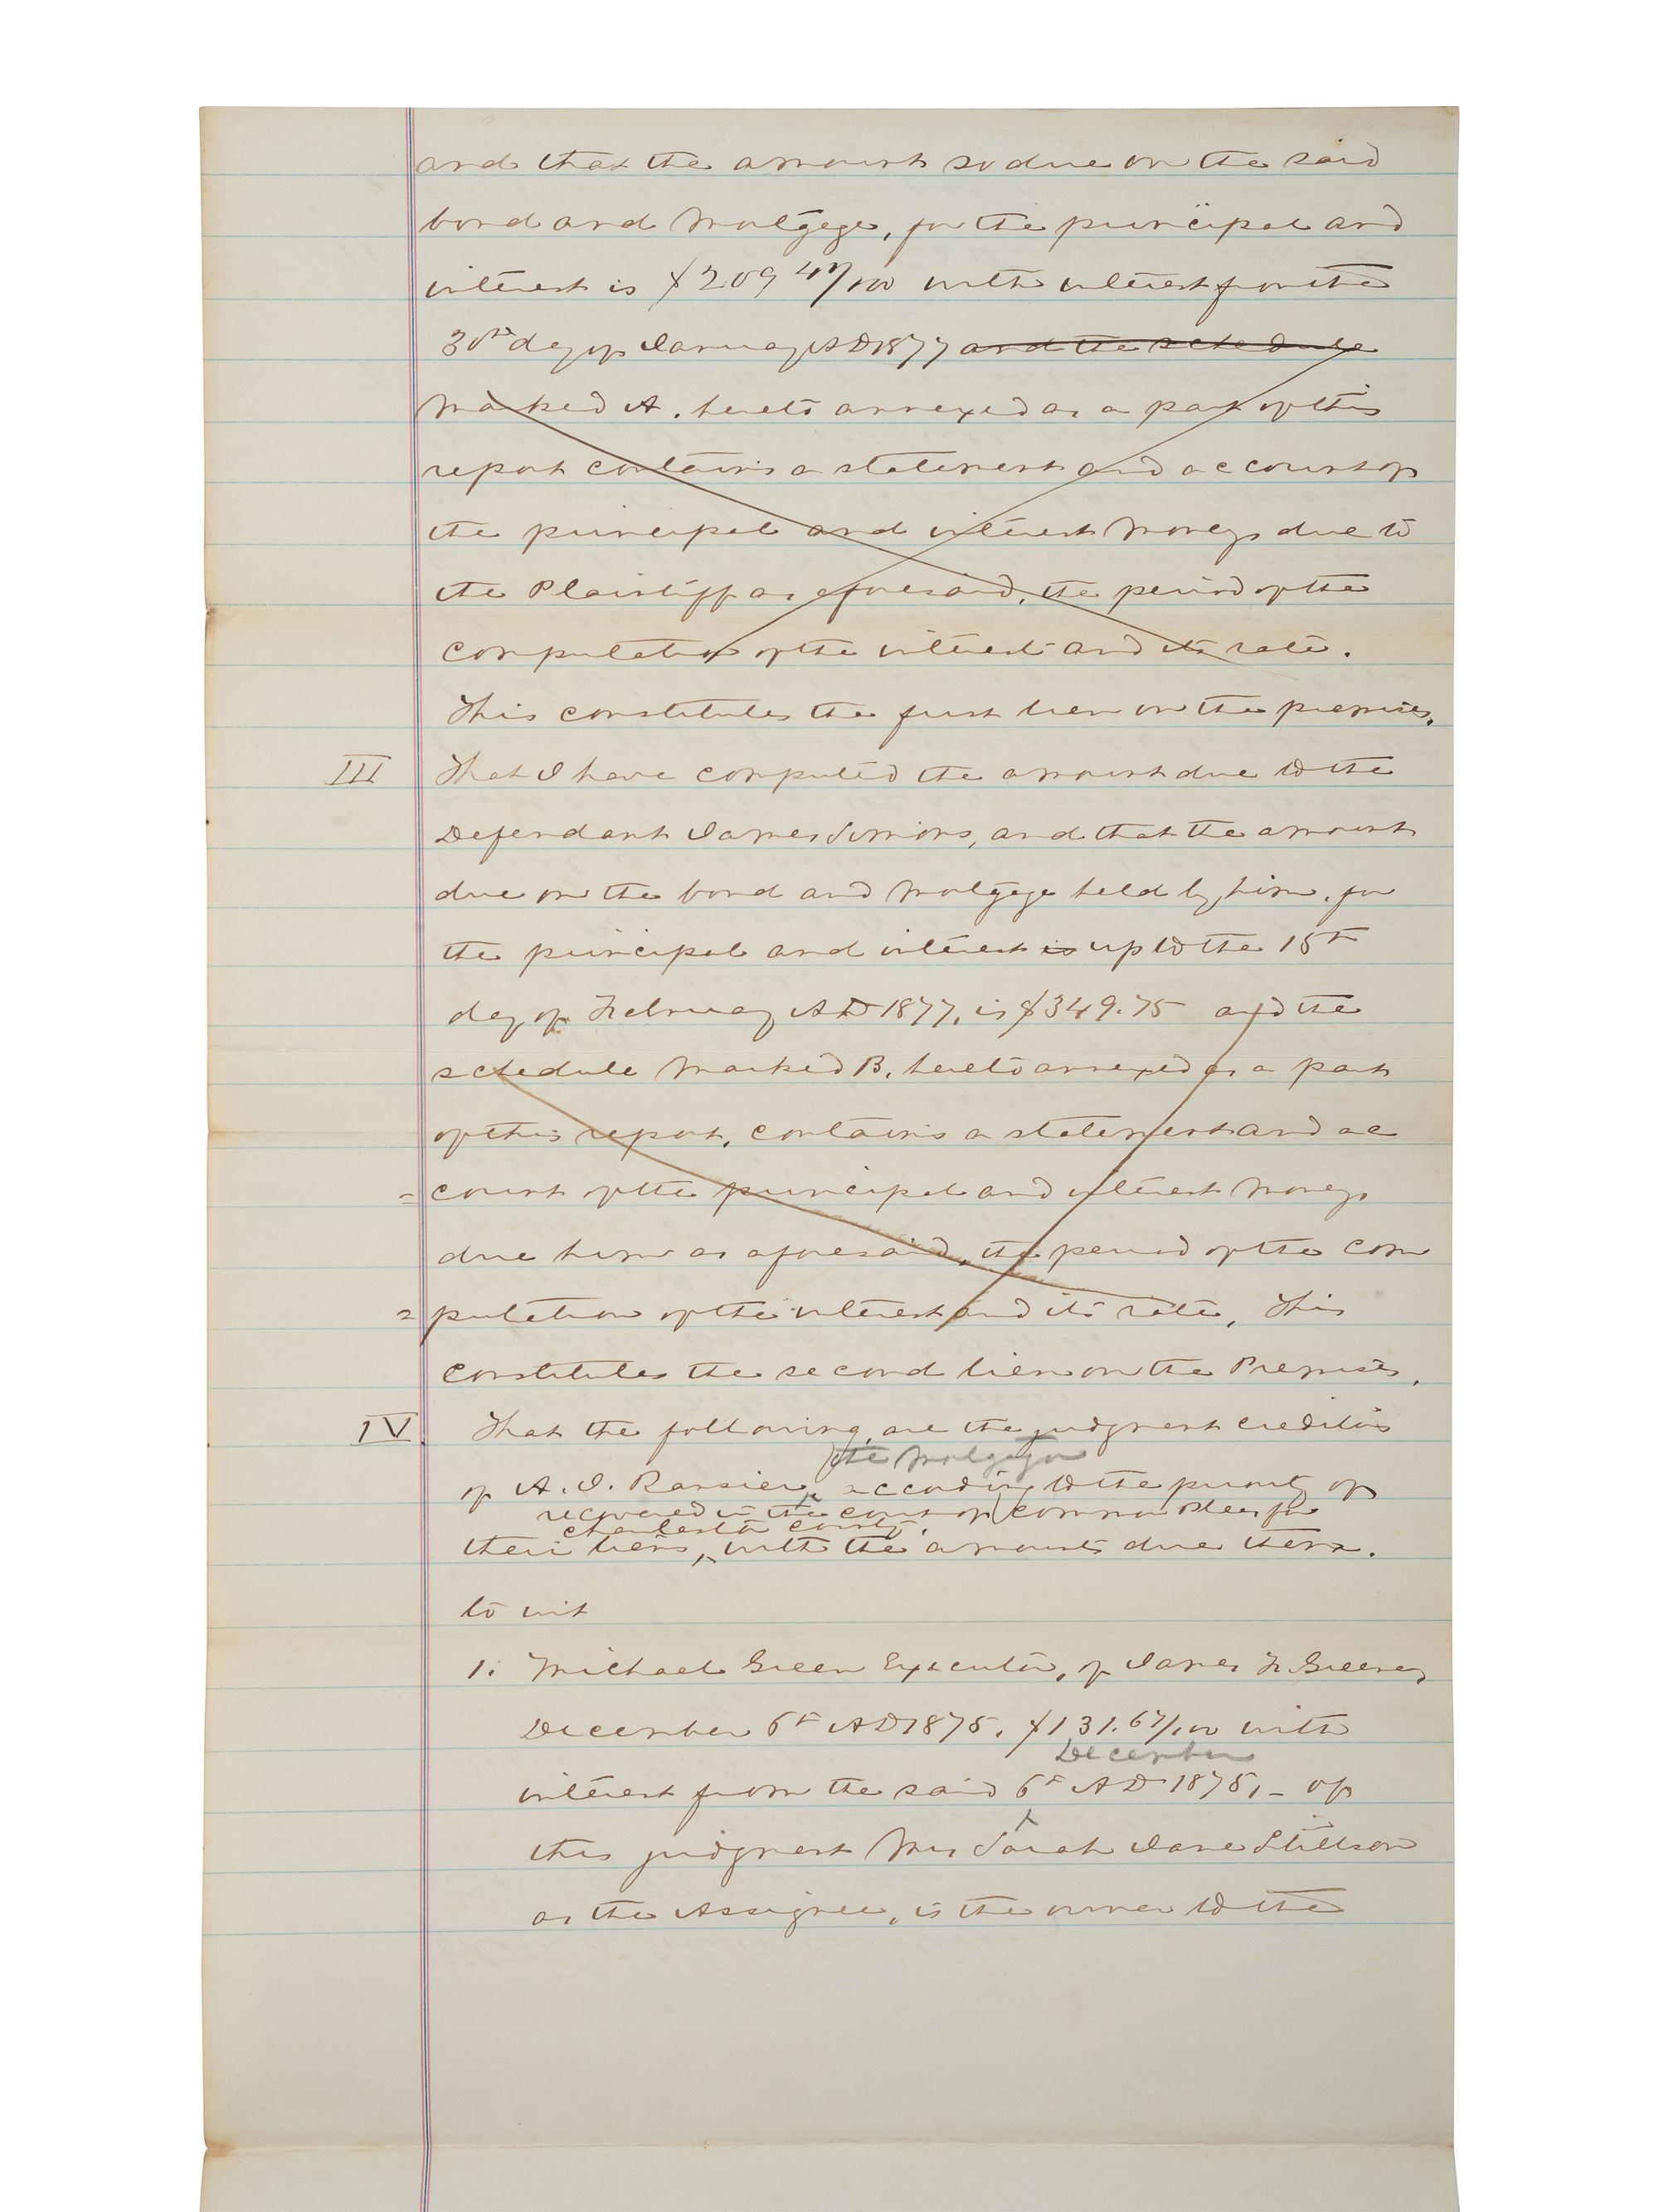 and that the amount so due on the said
bond and Mortgage, for the principal and
interest is $209 47/100 with interest from the
30th day of January AD 1877 and the schedule
Marked A. hereto annexed as a part of this
report contains a statement and account of
the principal and interest Moneys due to
the Plaintiff as aforesaid, the period of the
computation of the interest and its rate.
This constitutes the first lien on the premises.
III That I have computed the amount due to the
Defendant James Simons, and that the amount
due on the bond and Mortgage held by him, for
the principal and interest is up to the 15th
day of February AD 1877, is $349.75 and the
schedule Marked B. hereto annexed as a part
of this report, contains a statement and ac
= count of the principal and interest Moneys
due him as aforesaid, the period of the com
= putation of the interest and its rate, This
constitutes the second lien on the Premises.
IV That the following, are the judgment creditors
the Mortgagor
of A. J. Ransier, according to the priority of
recovered in the court of Common Pleas for
Charleston County.
their liens, with the amounts due them.
to wit
1. Michael Green Executor, of James H. Greene,
December 6th AD 1875. $131.67/100 with
December
interest from the said 6th AD 1875, - of
this judgment Mrs Sarah Jane Stillson
as the Assignee, is the owner to the